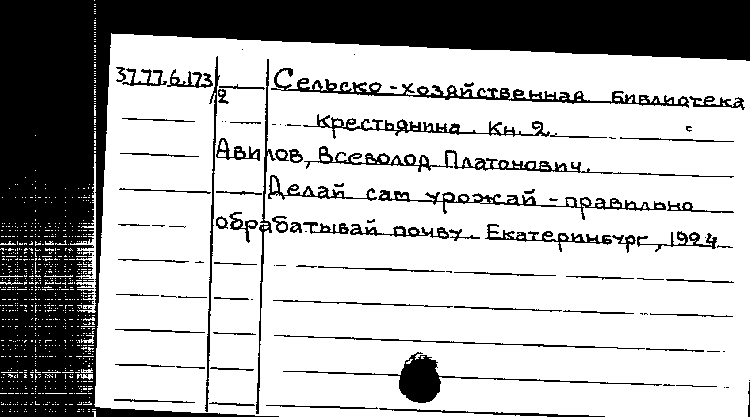 37.77.6.173/2 Сельско-хозяйственная библиотека
крестьянина. Кн. 2.
Авилов, Всеволод Платонович.
Делай сам урожай - правильно
обрабатывай почву. Екатеринбург, 1924